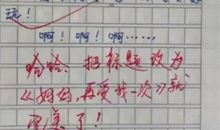 玩！
啊！啊！啊……
哈哈、把标题改为
《妈妈,再爱我一次》就
完美了！